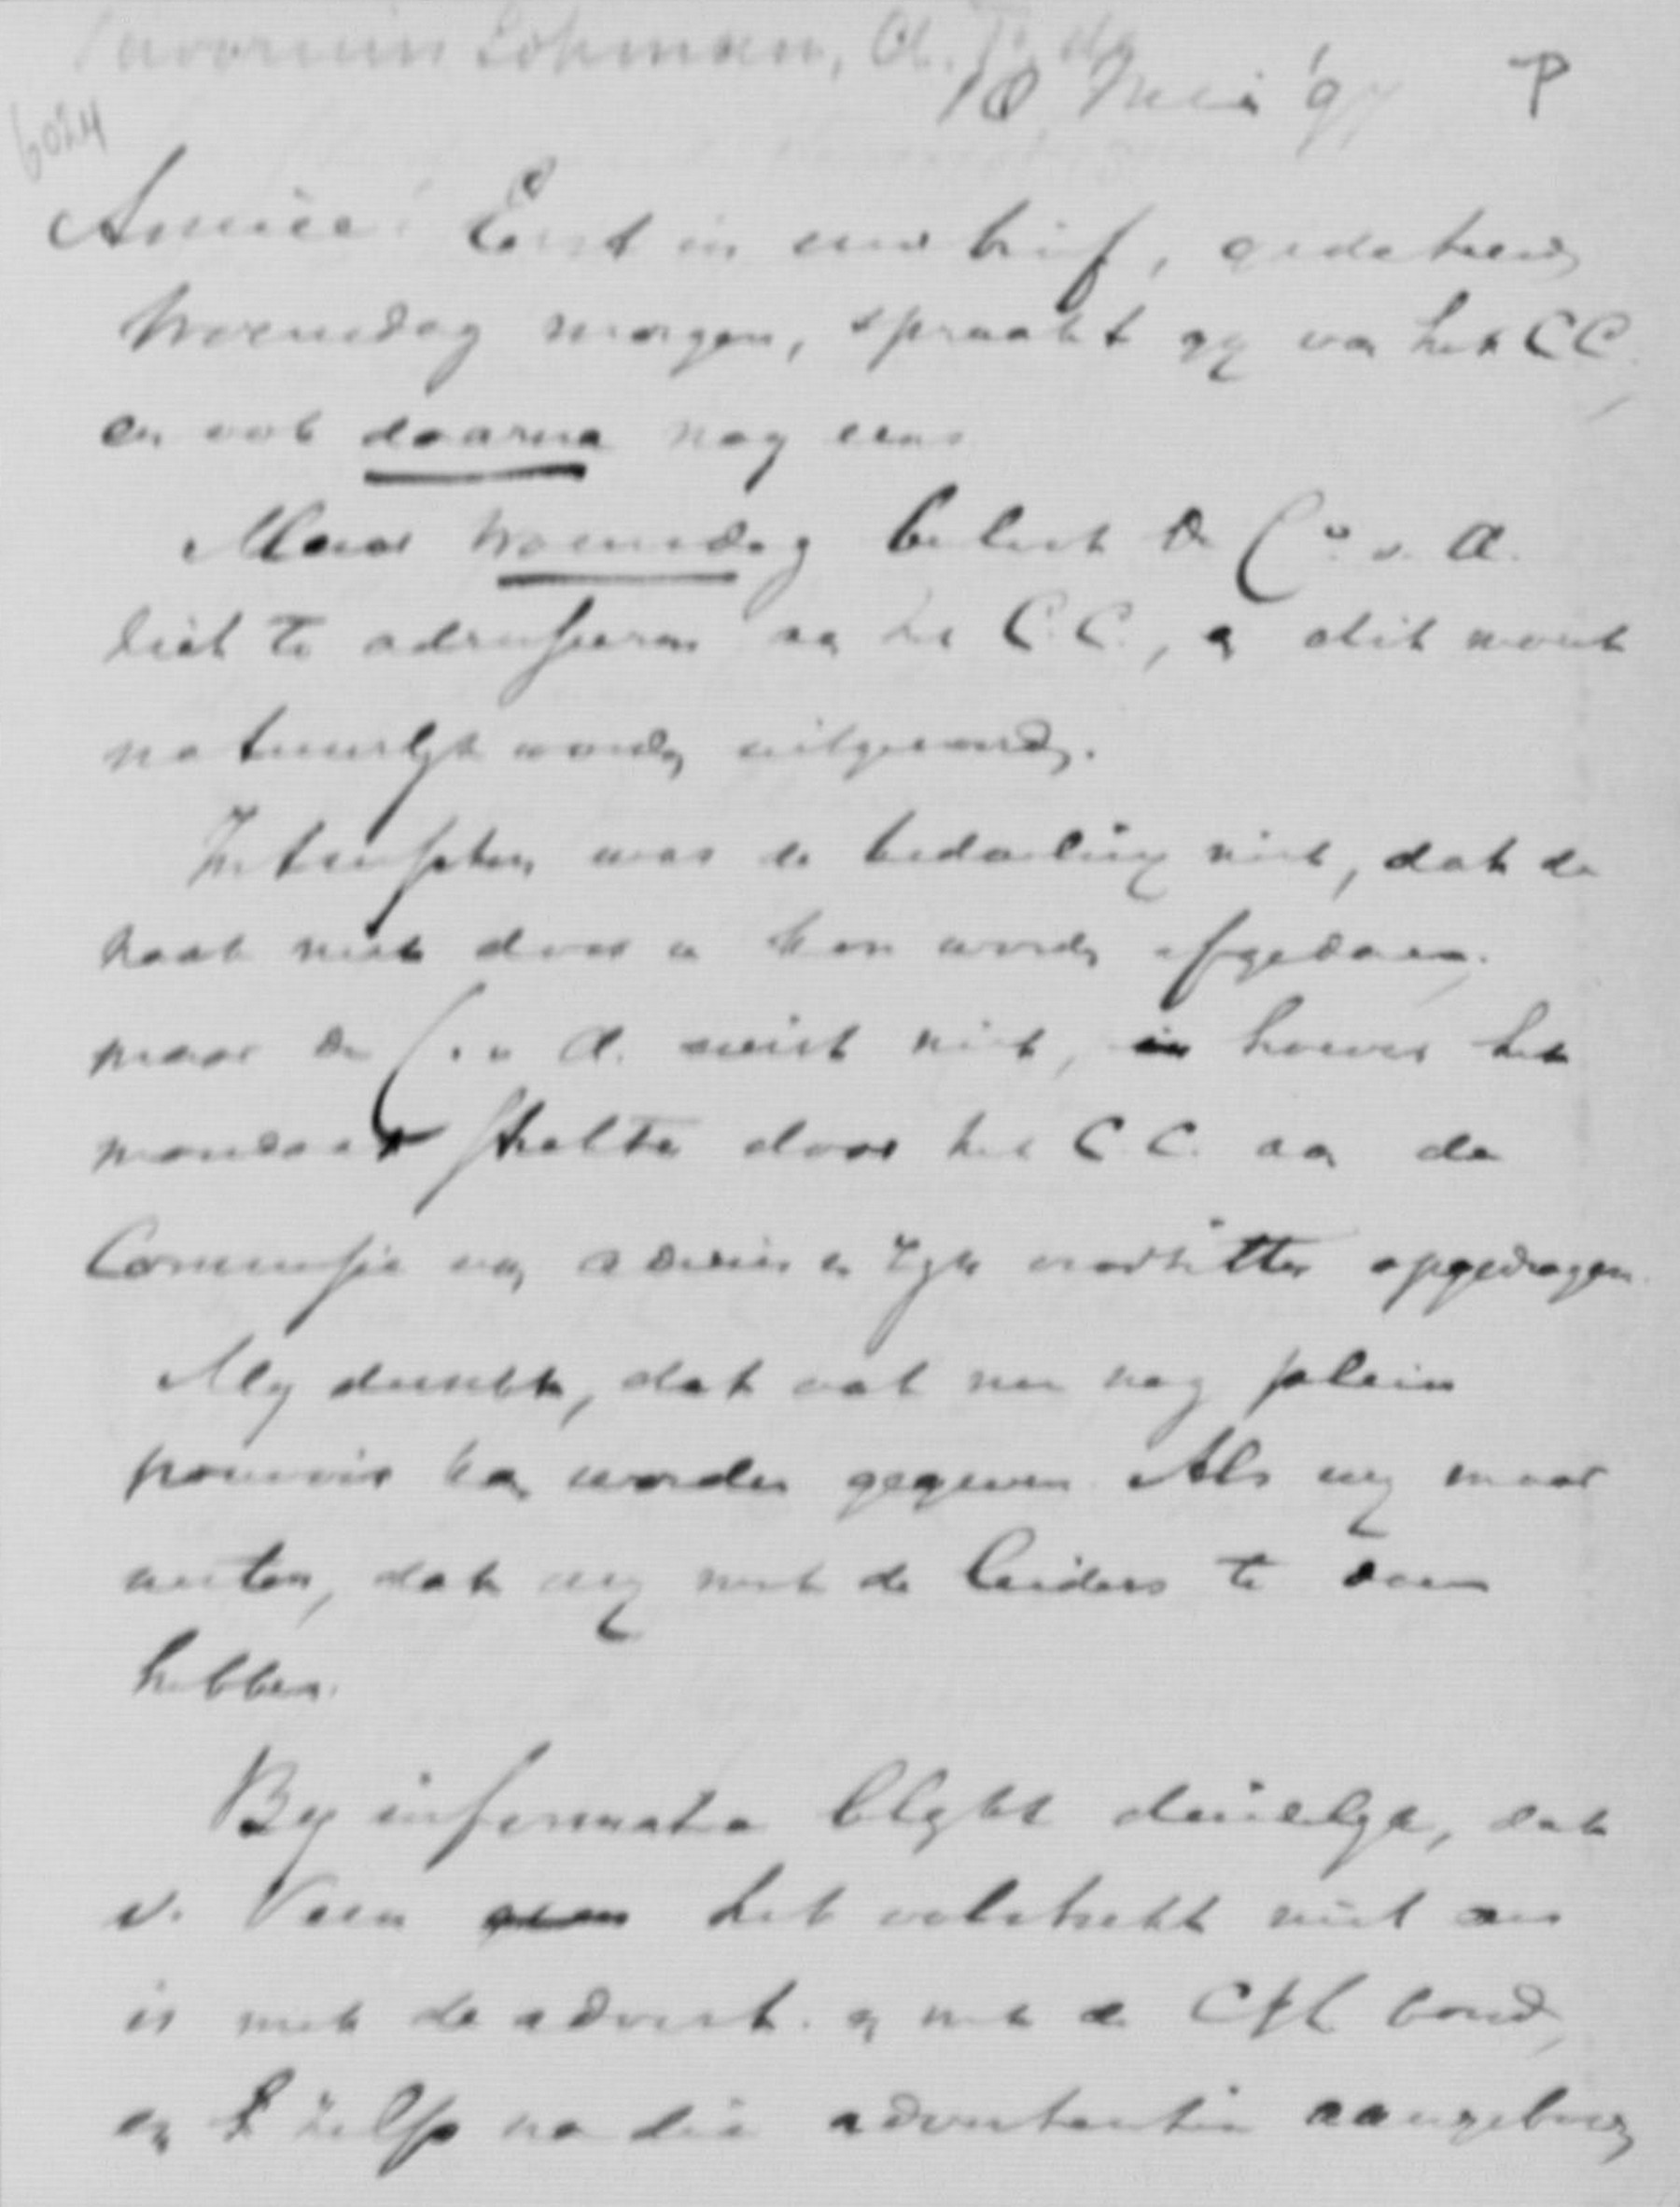 Savornin Lohman, A. F. de
10 Mei '97 P
6024
Amice! Eerst in uw brief, gedateerd
Woensdag morgen, spraakt gy van het CC,
en ook daarna nog eens
Maar Woensdag besloot de C. v. A.
liet te adresseeren aan het C.C., en dit moet
natuurlyk worden uitgevoerd.
Intusschen was de bedoeling niet, dat de
zaak niet door u kon worden afgedaan,
maar de C. v. A. wist niet, in hoever het
mandaat strekte door het C.C. aan de
Commissie van advies en zyn voorzitter opgedragen.
My dunkt, dat ook nu nog plein
pouvoir kan worden gegeven. Als wy maar
weten, dat wy met de leiders te doen
hebben.
By informatie blykt duidelyk, dat
v. Veen het volstrekt niet eens
is met de advert. en met de bond,
en zelfs na die advertentie aangeboden